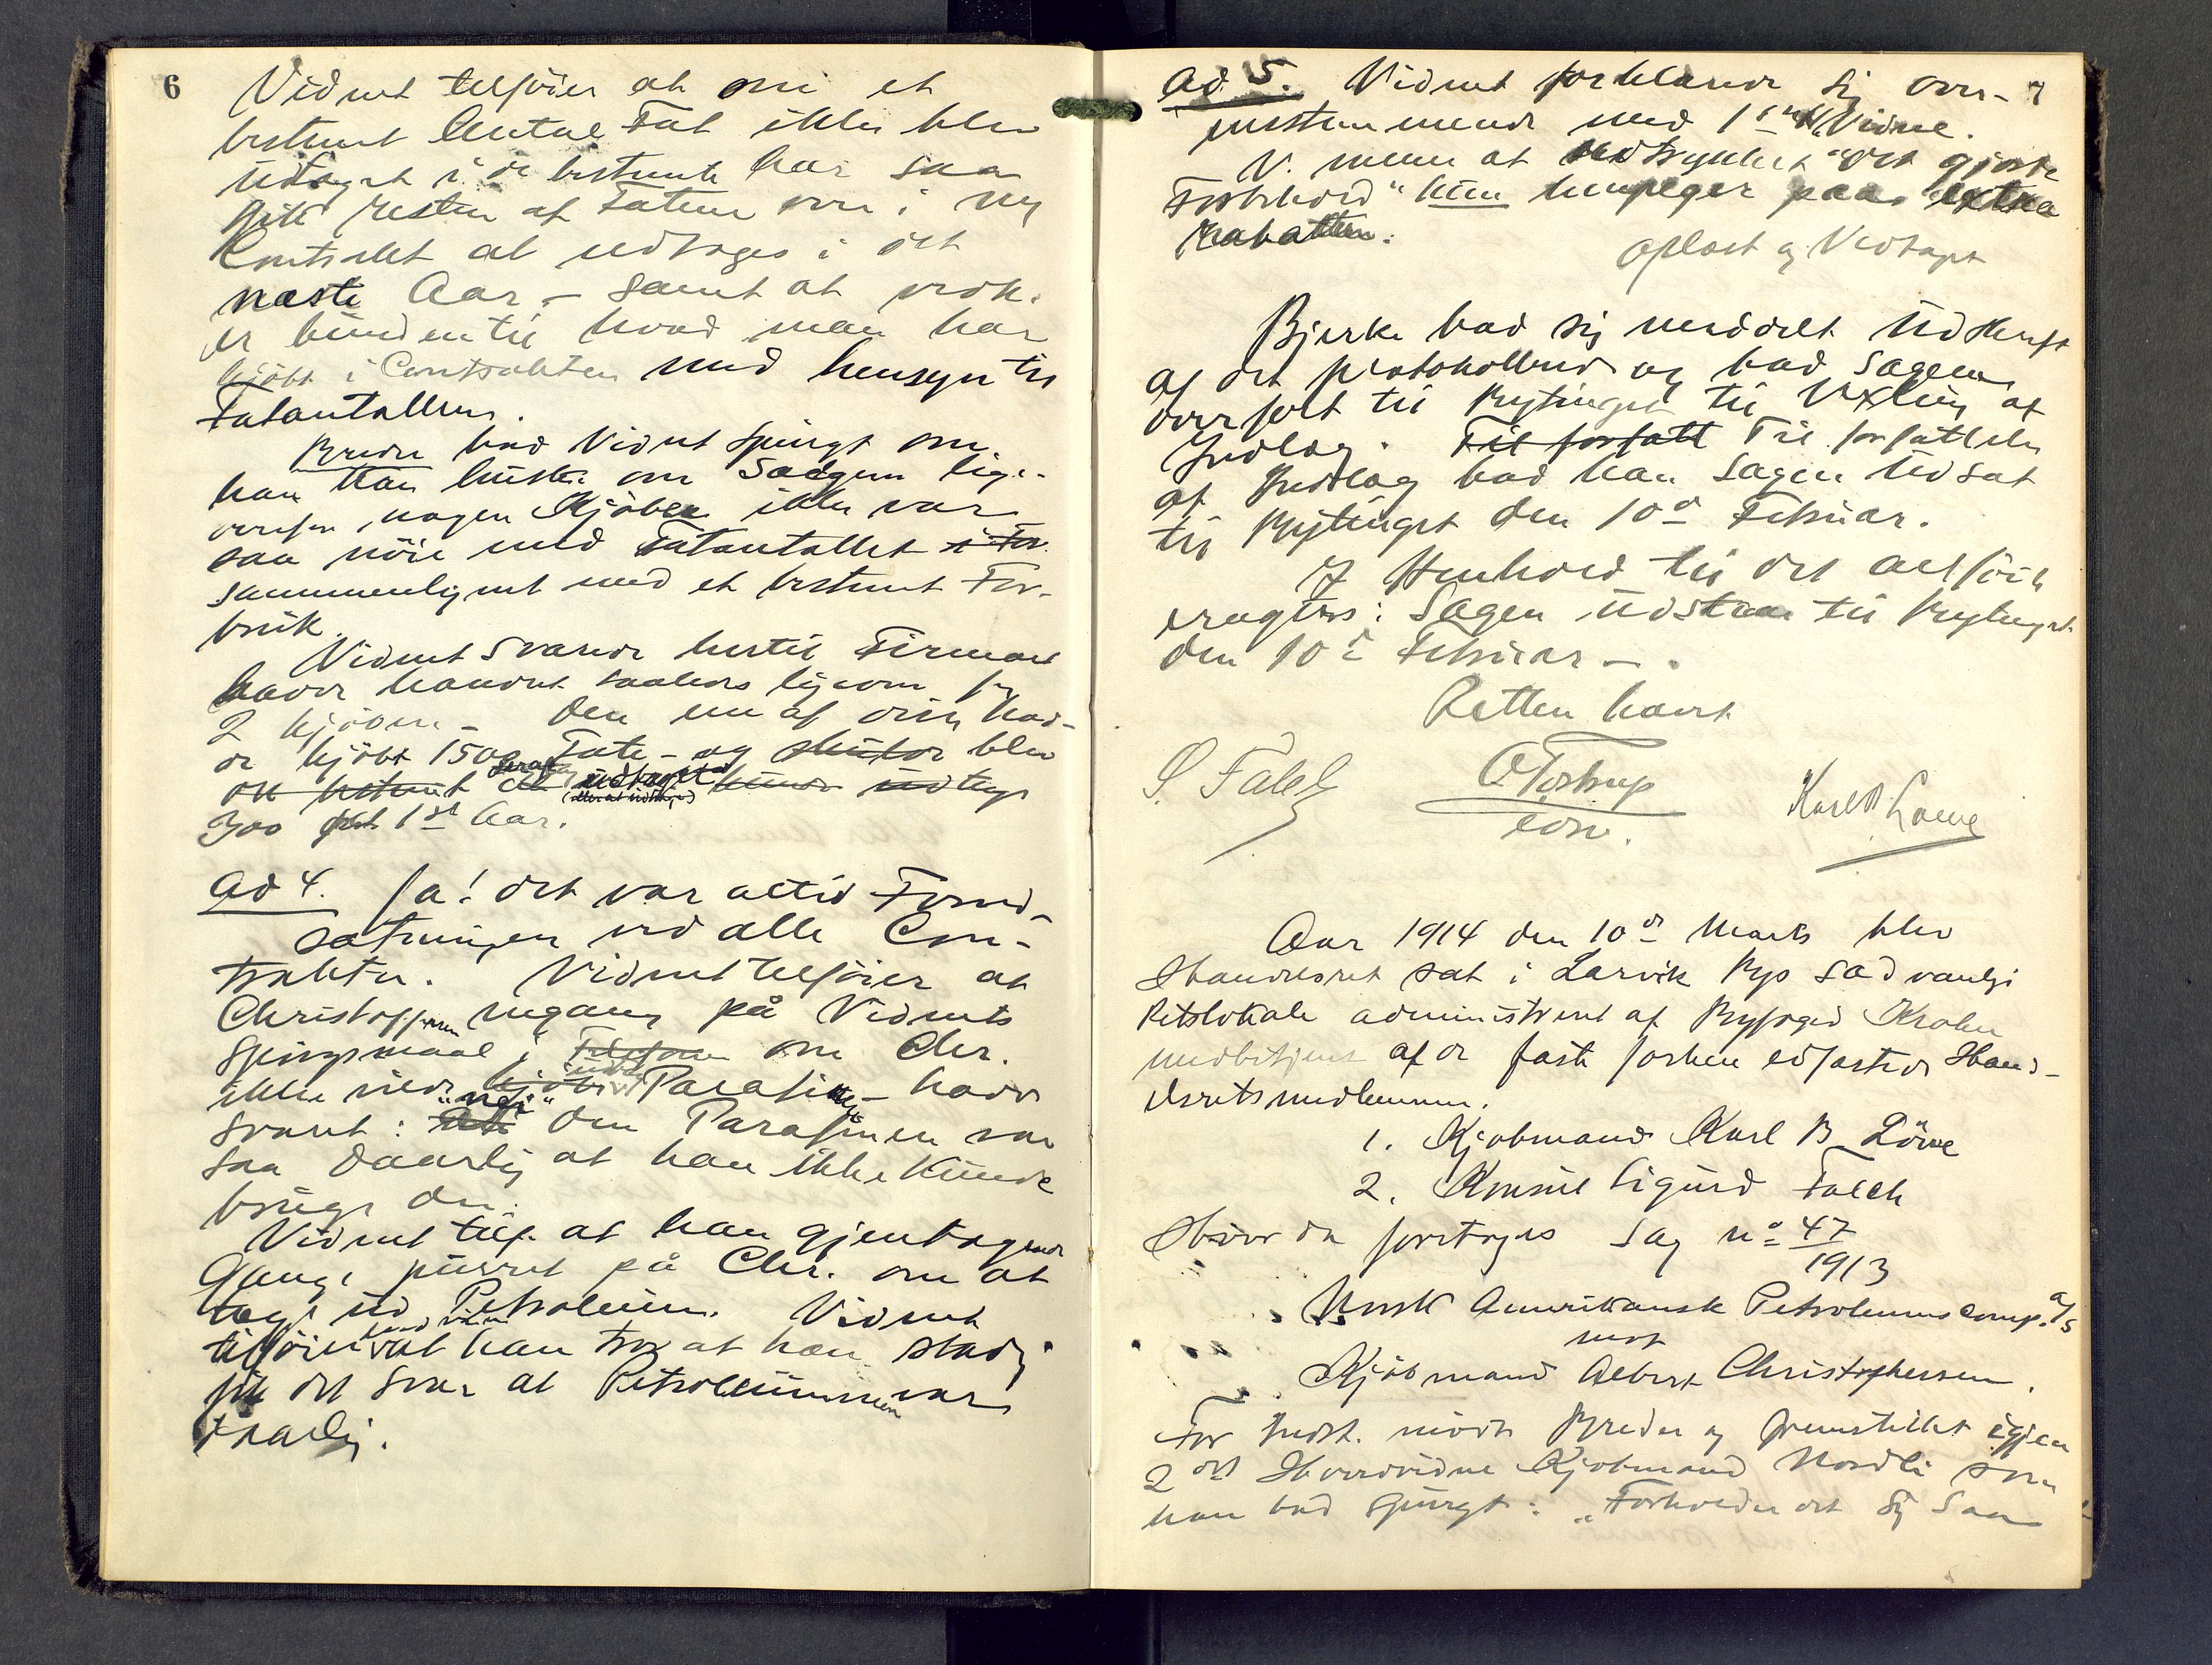 6
Vidnet tilføier at om et
bestemt Antal Fat ikke blev
udtaget i de bestemte har saa
gik resten af Fatene over i ny
Contrakt at udtages i det
næste Aar – samt at
er bunden til hvad man har
kjøbt i Contrakten med hensyn til
Fatantallene.
Breder bad Vidnet spurgt om
han kan huske om Sælgern lige-
overfor nogen Kjøber ikke var
saa nøie med Fatantallet i For
sammenlignet med et bestemt For-
bruk.
Vidnet svarer hertil Firmaet
havde handlet saaledes ligeom for
2 kjøbere – den ene af disse hav-
de kjøbt 1500 Fate – og blev
det bestemt at udtaget kunde udtages
(eller at udtages)
300 det 1ste Aar.
Ad 4. Ja! det var altid Forud-
sætningen ved alle Con-
trakter. Vidnet tilføier at
Christophersen engang på Vidnets
Spørgsmaal i Telefonen om Chr.
ikke vilde kjøbe Parafinen – havde
svaret: "nei" den Parafinen var
saa daarlig at han ikke kunde
bruge den.
Vidnet tilf. at han gjentagende
Gange purret på Chr. om at
tage ud Petroleum. Vidnet
tilføier at han tror at han stadig
fik det Svar at Petroleummen var
daarlig.
7
Ad 5. Vidnet forklarer sig over-
ensstemmende med 1ste Vidne.
V. mener at Udtrykket "det gjorte
Forbehold" kun henpeger paa extra
Rabatten.
Oplæst og Vedtaget
Bjerke bad sig meddelt Udskrift
af det protokollerede og bad Sagen
overført til Bytinget til Vexling af
Indlæg. Til forfatt Til forfattelse
af Indlæg bad han Sagen udsat
til Bytinget den 10de Februar.
I Henhold til det anførte
eragtes: Sagen udstaar til Bytinget
den 10de Februar –.
Retten hævet
S. Falch
O Tostrup
edsv.
Karl B Løwe
Aar 1914 den 10de Marts blev
Handelsret sat i Larvik Bys sædvanlige
Retslokale administreret af Byfoged Krohn
medbetjent af de faste forhen edfæstede Hand-
elsretsmedlemmer.
1. Kjøbmand Karl B Löwe
2. Konsul Sigurd Falch
Hvor da foretoges Sag no 47
1913
Norsk Amerikansk Petroleumscomp. a/s
mot
Kjøbmand Albert Christophersen.
For Indst. mødte Breder og fremstillet igjen
2det Hovedvidne Kjøbmand Nordli som
han bad spurgt: "Forholder det sig saa